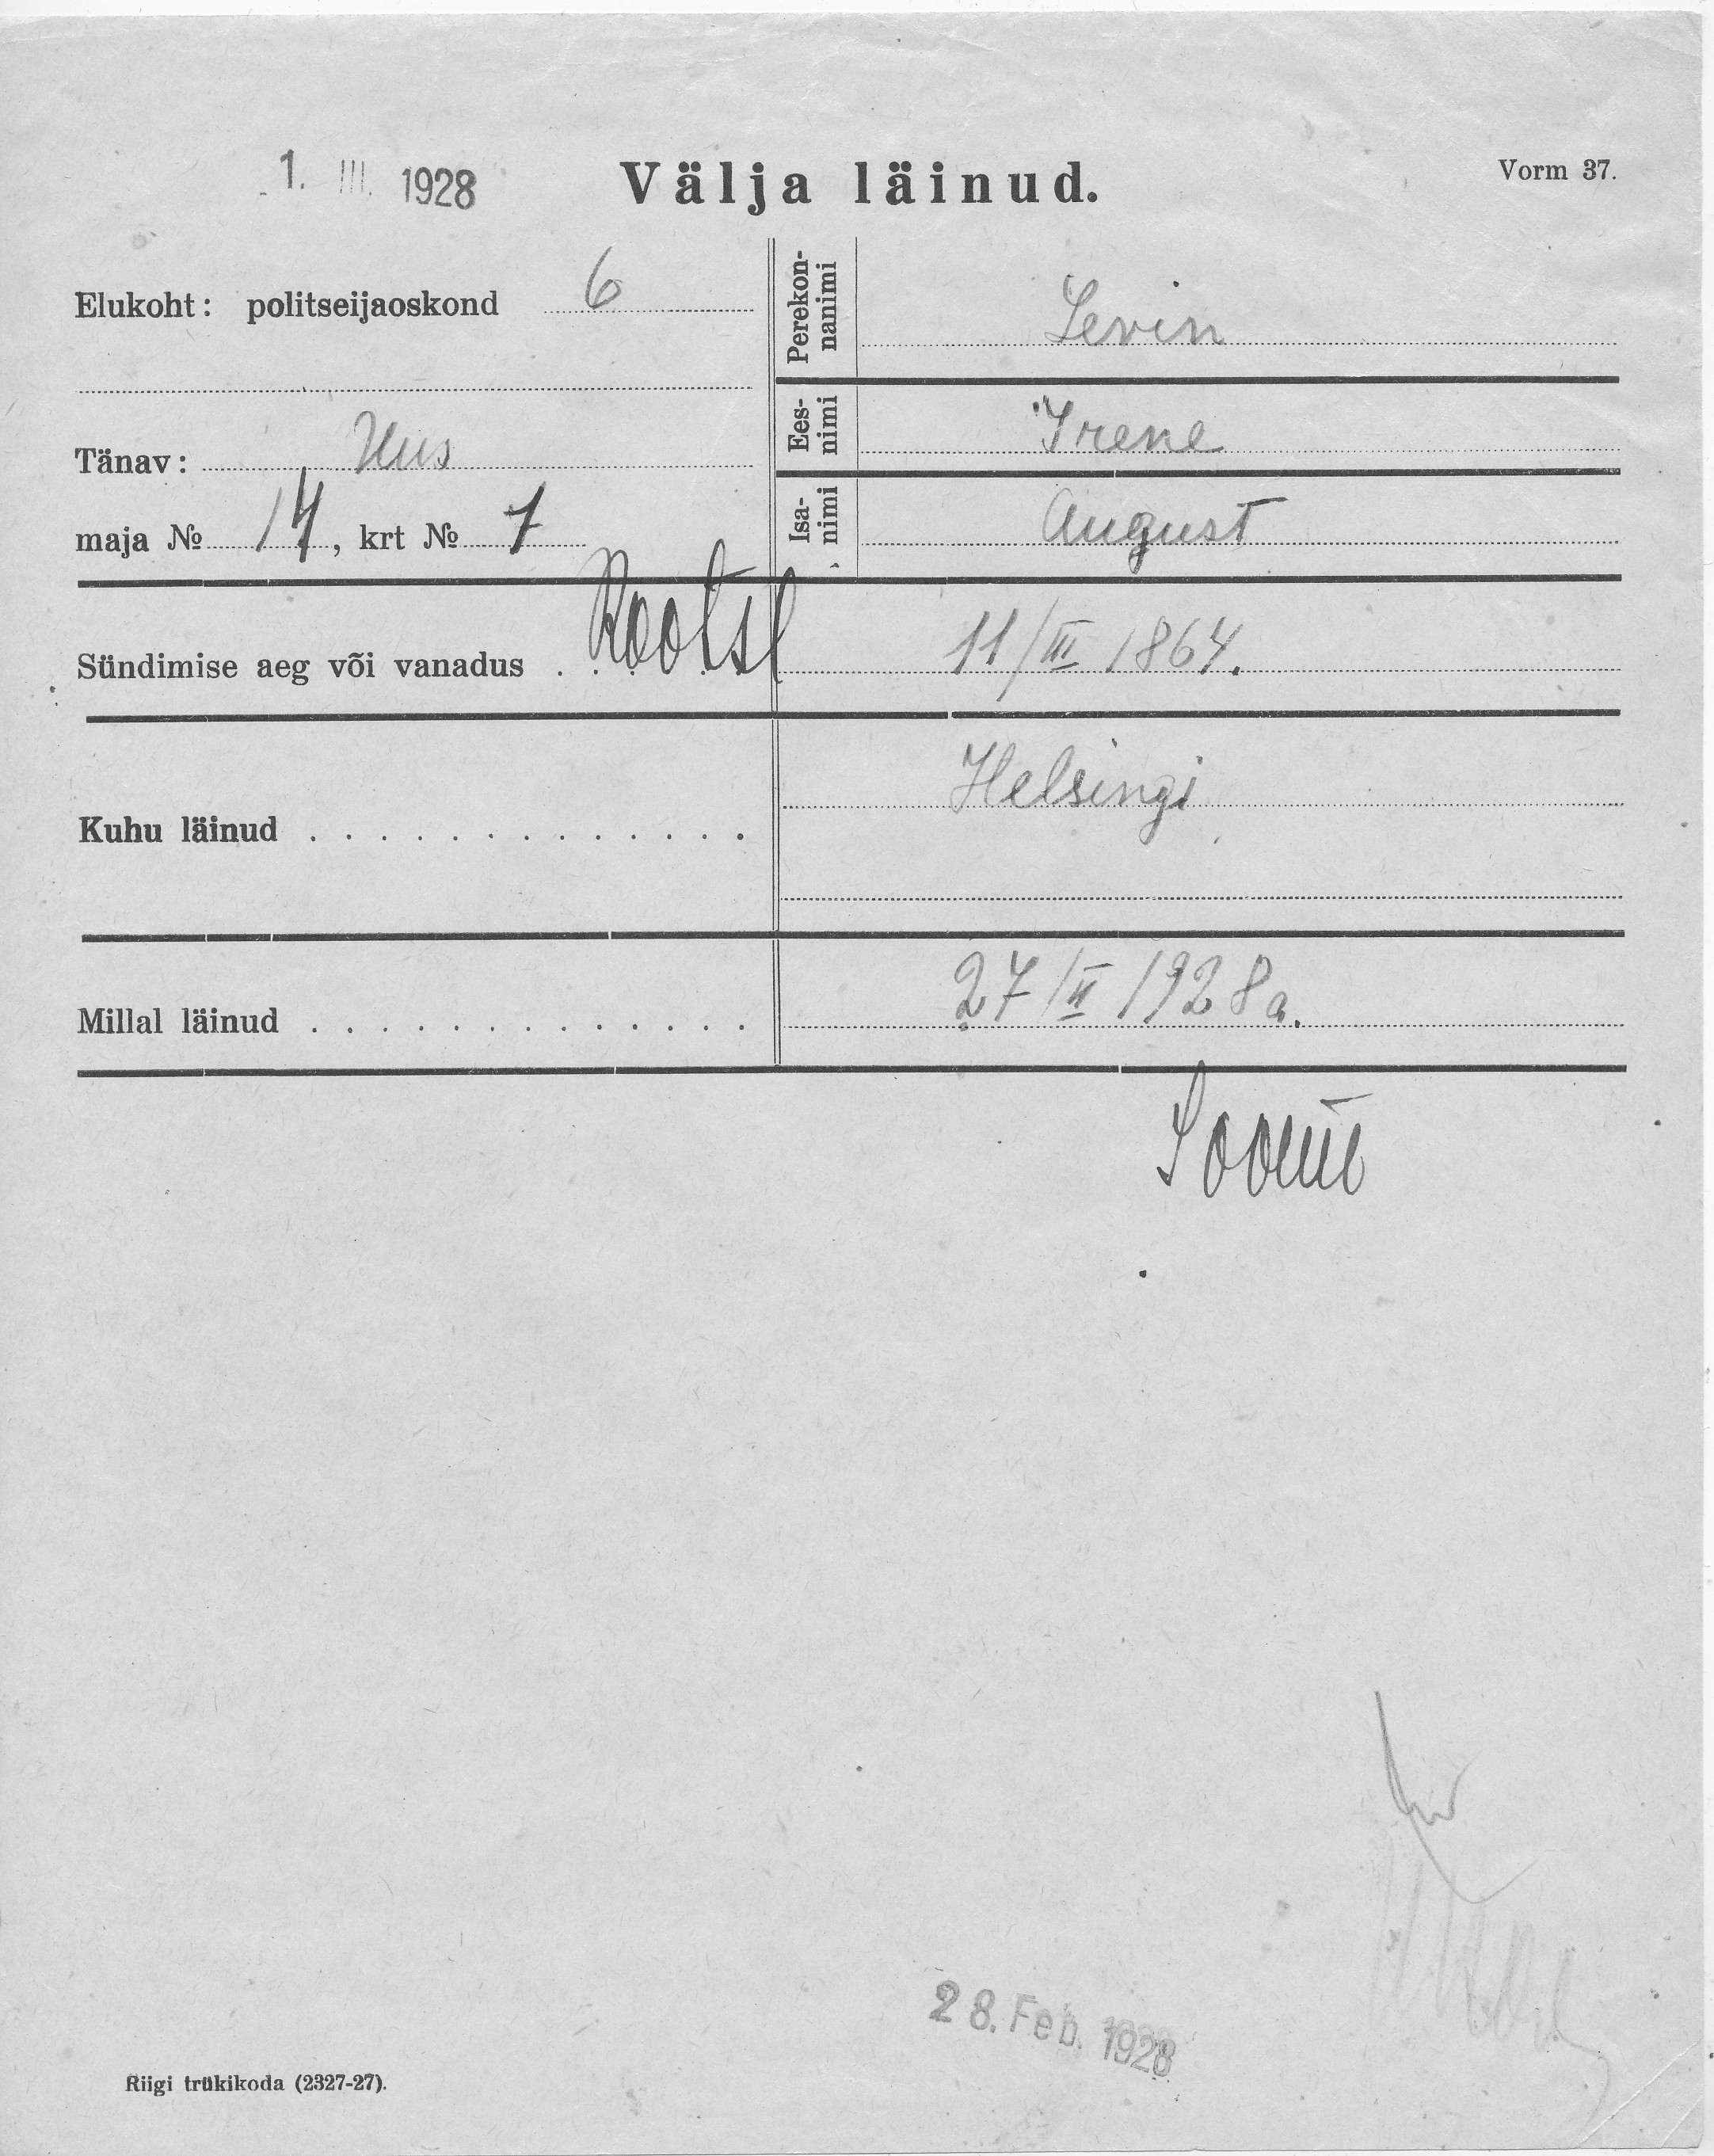 1. III. 1928
Välja läinud.
Vorm 37.
Elukoht: politseijaoskond 6
Tänav: Uus
maja № 14, krt № 7
Perekon-
nanimi
Levin
Ees-
nimi
Irene
Isa-
nimi
August
Sündimise aeg või vanadus . . . . . . 11/III 1864.
Rootsi
Kuhu läinud . . . . . . . . . . . . . Helsingi
Millal läinud . . . . . . . . . . . . . 27/II 1928 a.
Soome
28. Feb. 1928
Riigi trükikoda (2327-27).